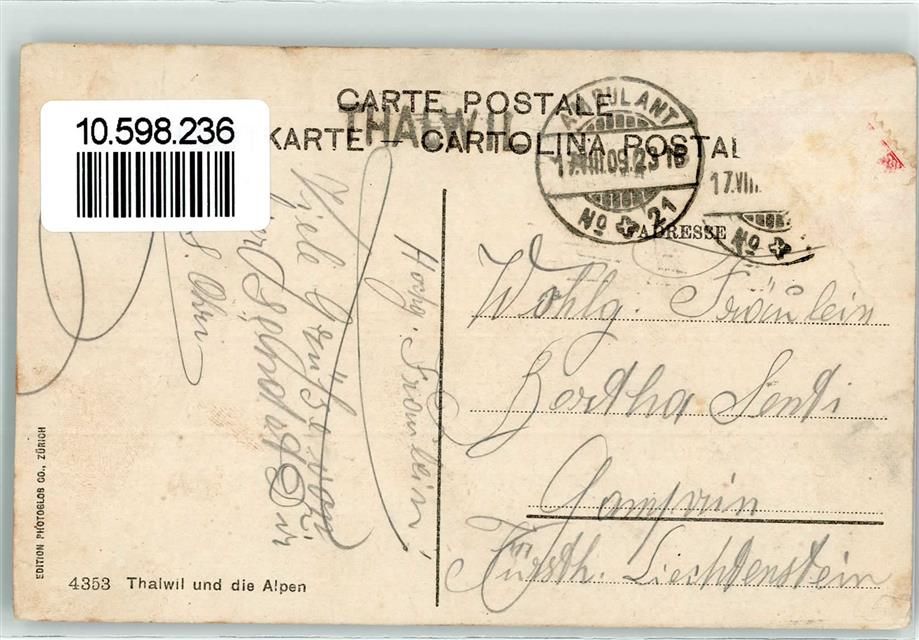 10.598.236
CARTE POSTALE
KARTE — CARTOLINA POSTAL
THALWIL
AMBULANT
17.VIII.09.23
No 21
17.VIII.
No
ADRESSE
Wohlg. Fräulein
Bertha Senti
Gamprin
Fürsth. Liechtenstein
Hochg. Fräulein
Viele Grüße von
Ihr
EDITION PHOTOGLOB CO., ZÜRICH
4353 Thalwil und die Alpen